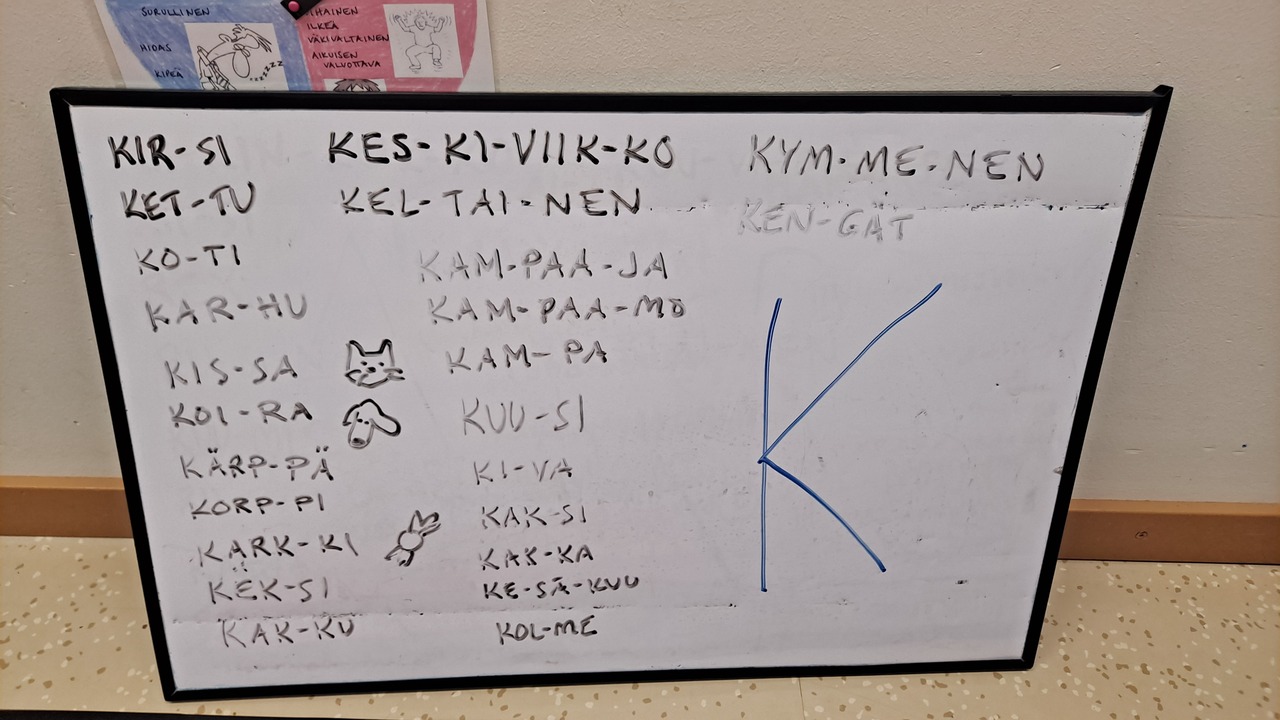 SURULLINEN
HIDAS
KIPEÄ
VIHAINEN
ILKEÄ
VÄKIVALTAINEN
AIKUISEN
VALVOTTAVA
ZZZZZ
KIR-SI
KET-TU
KO-TI
KAR-HU
KIS-SA
KOI-RA
KÄRP-PÄ
KORP-PI
KARK-KI
KEK-SI
KAK-KU
KES-KI-VIIK-KO
KEL-TAI-NEN
KAM-PAA-JA
KAM-PAA-MO
KAM-PA
KUU-SI
KI-VA
KAK-SI
KAK-KA
KE-SÄ-KUU
KOL-ME
KYM-ME-NEN
KEN-GÄT
K